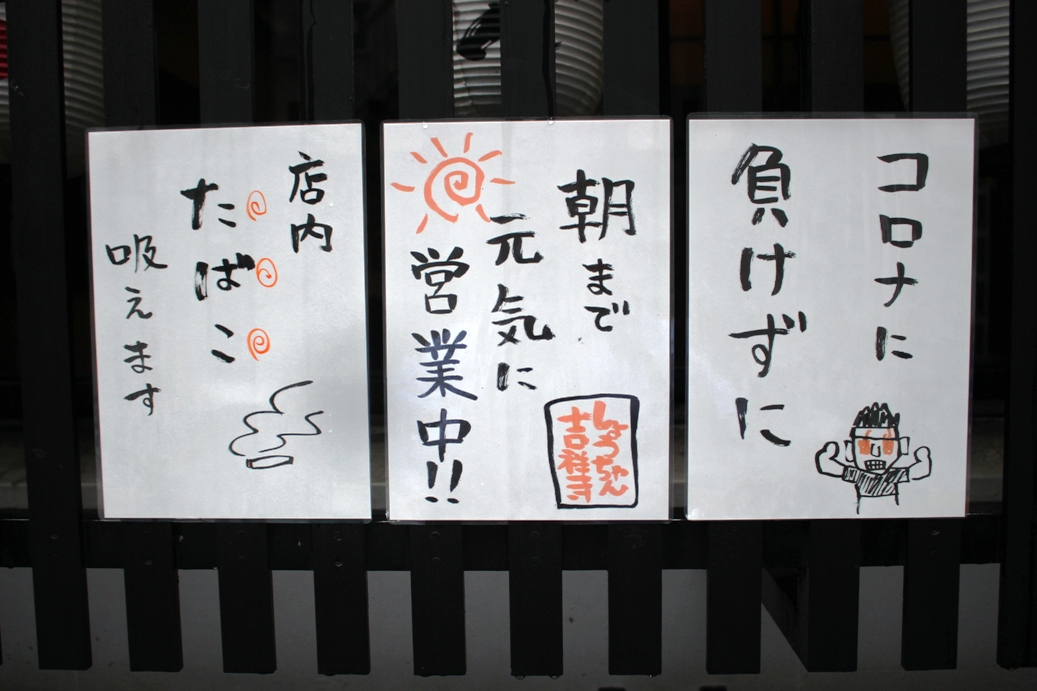 コロナに
負けずに
朝まで
元気に
営業中!!
しょうちゃん
吉祥寺
店内
たばこ
吸えます